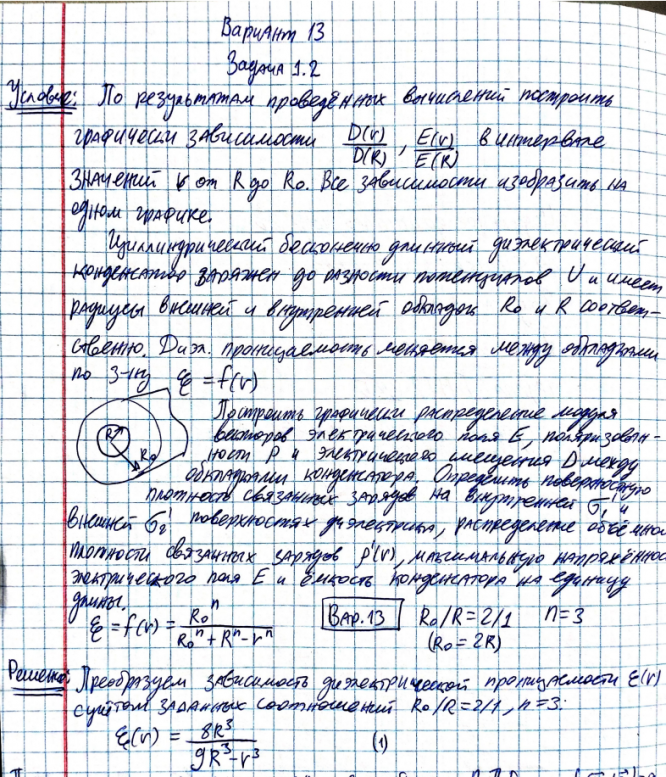 Вариант 13
Задача 1.2
Условие: По результатам проведённых вычислений построить
графически зависимости D(r)/D(R), E(r)/E(R) в интервале
значений r от R до R₀. Все зависимости изобразить на
одном графике.
Циллиндрический бесконечно длинный диэлектрический
конденсатор заряжен до разности потенциалов U и имеет
радиусы внешней и внутренней обкладок R₀ и R соответ-
ственно. Диэл. проницаемость меняется между обкладками
по з-ну ε = f(r)
R
R₀
Построить графически распределение модуля
векторов электрического поля E, поляризован-
ности P и электрического смещения D между
обкладками конденсатора. Определить поверхностную
плотность связанных зарядов на внутренней σ₁' и
внешней σ₂' поверхностях диэлектрика, распределение объёмной
плотности связанных зарядов ρ'(r), максимальную напряжённос
электрического поля E и ёмкость конденсатора на единицу
длины.
ε = f(r) = R₀ⁿ/(R₀ⁿ + Rⁿ - rⁿ) Вар. 13 R₀/R = 2/1 n = 3
(R₀ = 2R)
Решение: Преобразуем зависимость диэлектрической проницаемости ε(r)
с учётом заданных соотношений R₀/R = 2/1, n = 3:
ε(r) = 8R³/(9R³ - r³) (1)